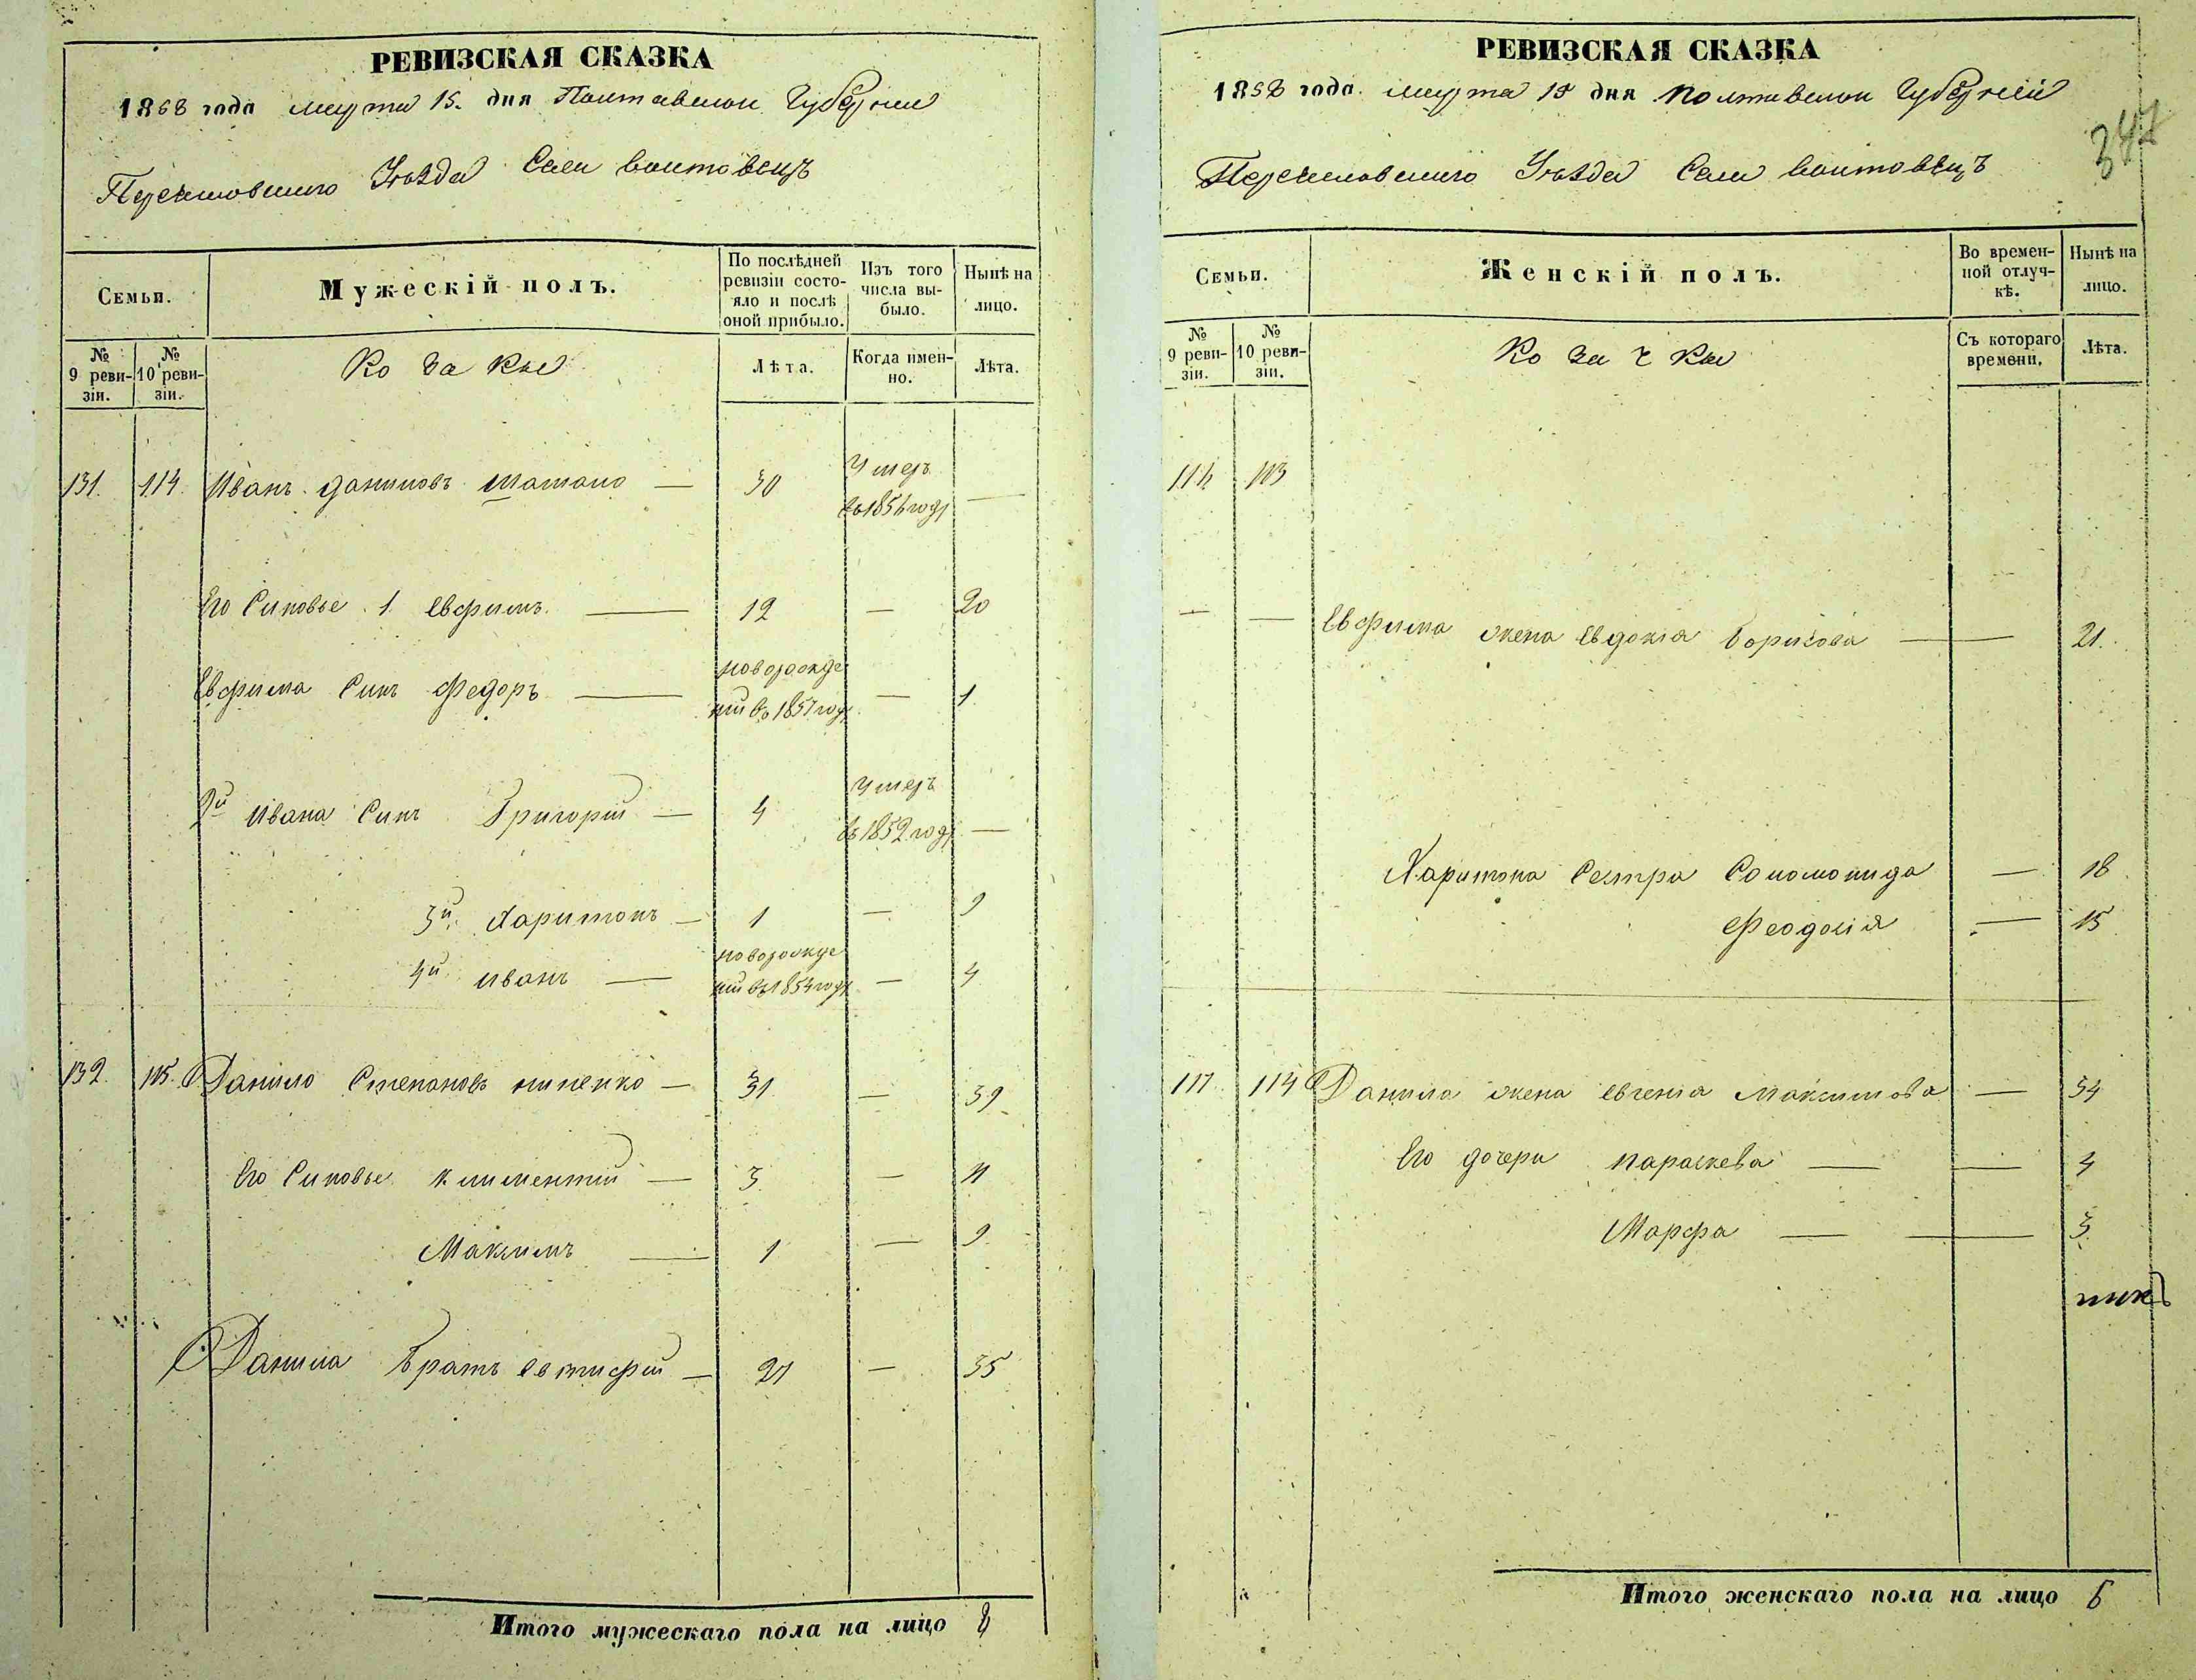 РЕВИЗСКАЯ СКАЗКА
1858 года марта 15. дня Полтавской Губернии
Переяславского Уѣзда Села Воитовецъ
Семьи.
Мужескій полъ.
По послѣдней ревизіи состояло и послѣ оной прибыло.
Изъ того числа выбыло.
Нынѣ на лицо.
№ 9 ревизіи.
№ 10 ревизіи.
Козаки
Лѣта.
Когда именно.
Лѣта.
131. 114. Иванъ Даниловъ — 30 Умеръ в 1856 году —
Его Синовье 1 Евфимъ — 12 — 20
Евфима Синъ Федоръ — новорожденій въ 1857 году — 1
2й Ивана Синъ Григорій — 4 Умеръ въ 1852 году —
3й Харитонъ — 1 — 9
4й Иванъ — новорожденій въ 1854 году — 4
132. 115. Данило Степановъ — 31 — 39
Его Синовье Климентій — 3 — 11
Максимъ — 1 — 9
Данила Братъ Евтифій — 27 — 35
Итого мужескаго пола на лицо 8
РЕВИЗСКАЯ СКАЗКА
1858 года марта 15 дня Полтавской Губерніи
347
Переяславского Уѣзда Села Воитовецъ
Семьи.
Женскій полъ.
Во временной отлучкѣ.
Нынѣ на лицо.
№ 9 ревизіи.
№ 10 ревизіи.
Козачки
Съ котораго времени.
Лѣта.
116 113
— — Евфима жена Евдокія Борисова — 21.
Харитона Сестра Соломонида — 18
Феодосія — 15
117 114 Данила жена Евгенія Максимова — 34
Его дочери Параскева — — 4
Марфа — — 3.
Итого женскаго пола на лицо 6